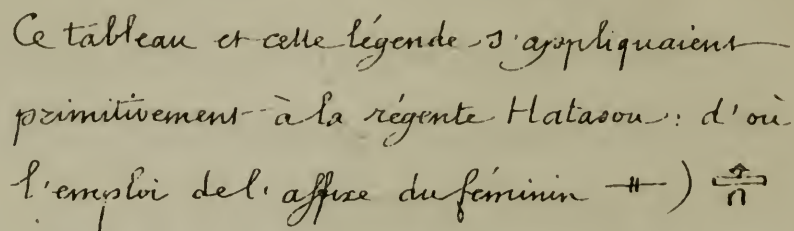 Ce tableau et cette légende s'appliquaient
primitivement à la régente Hatasou : d'où
l'emploi de l'affixe du féminin 𓊃 )